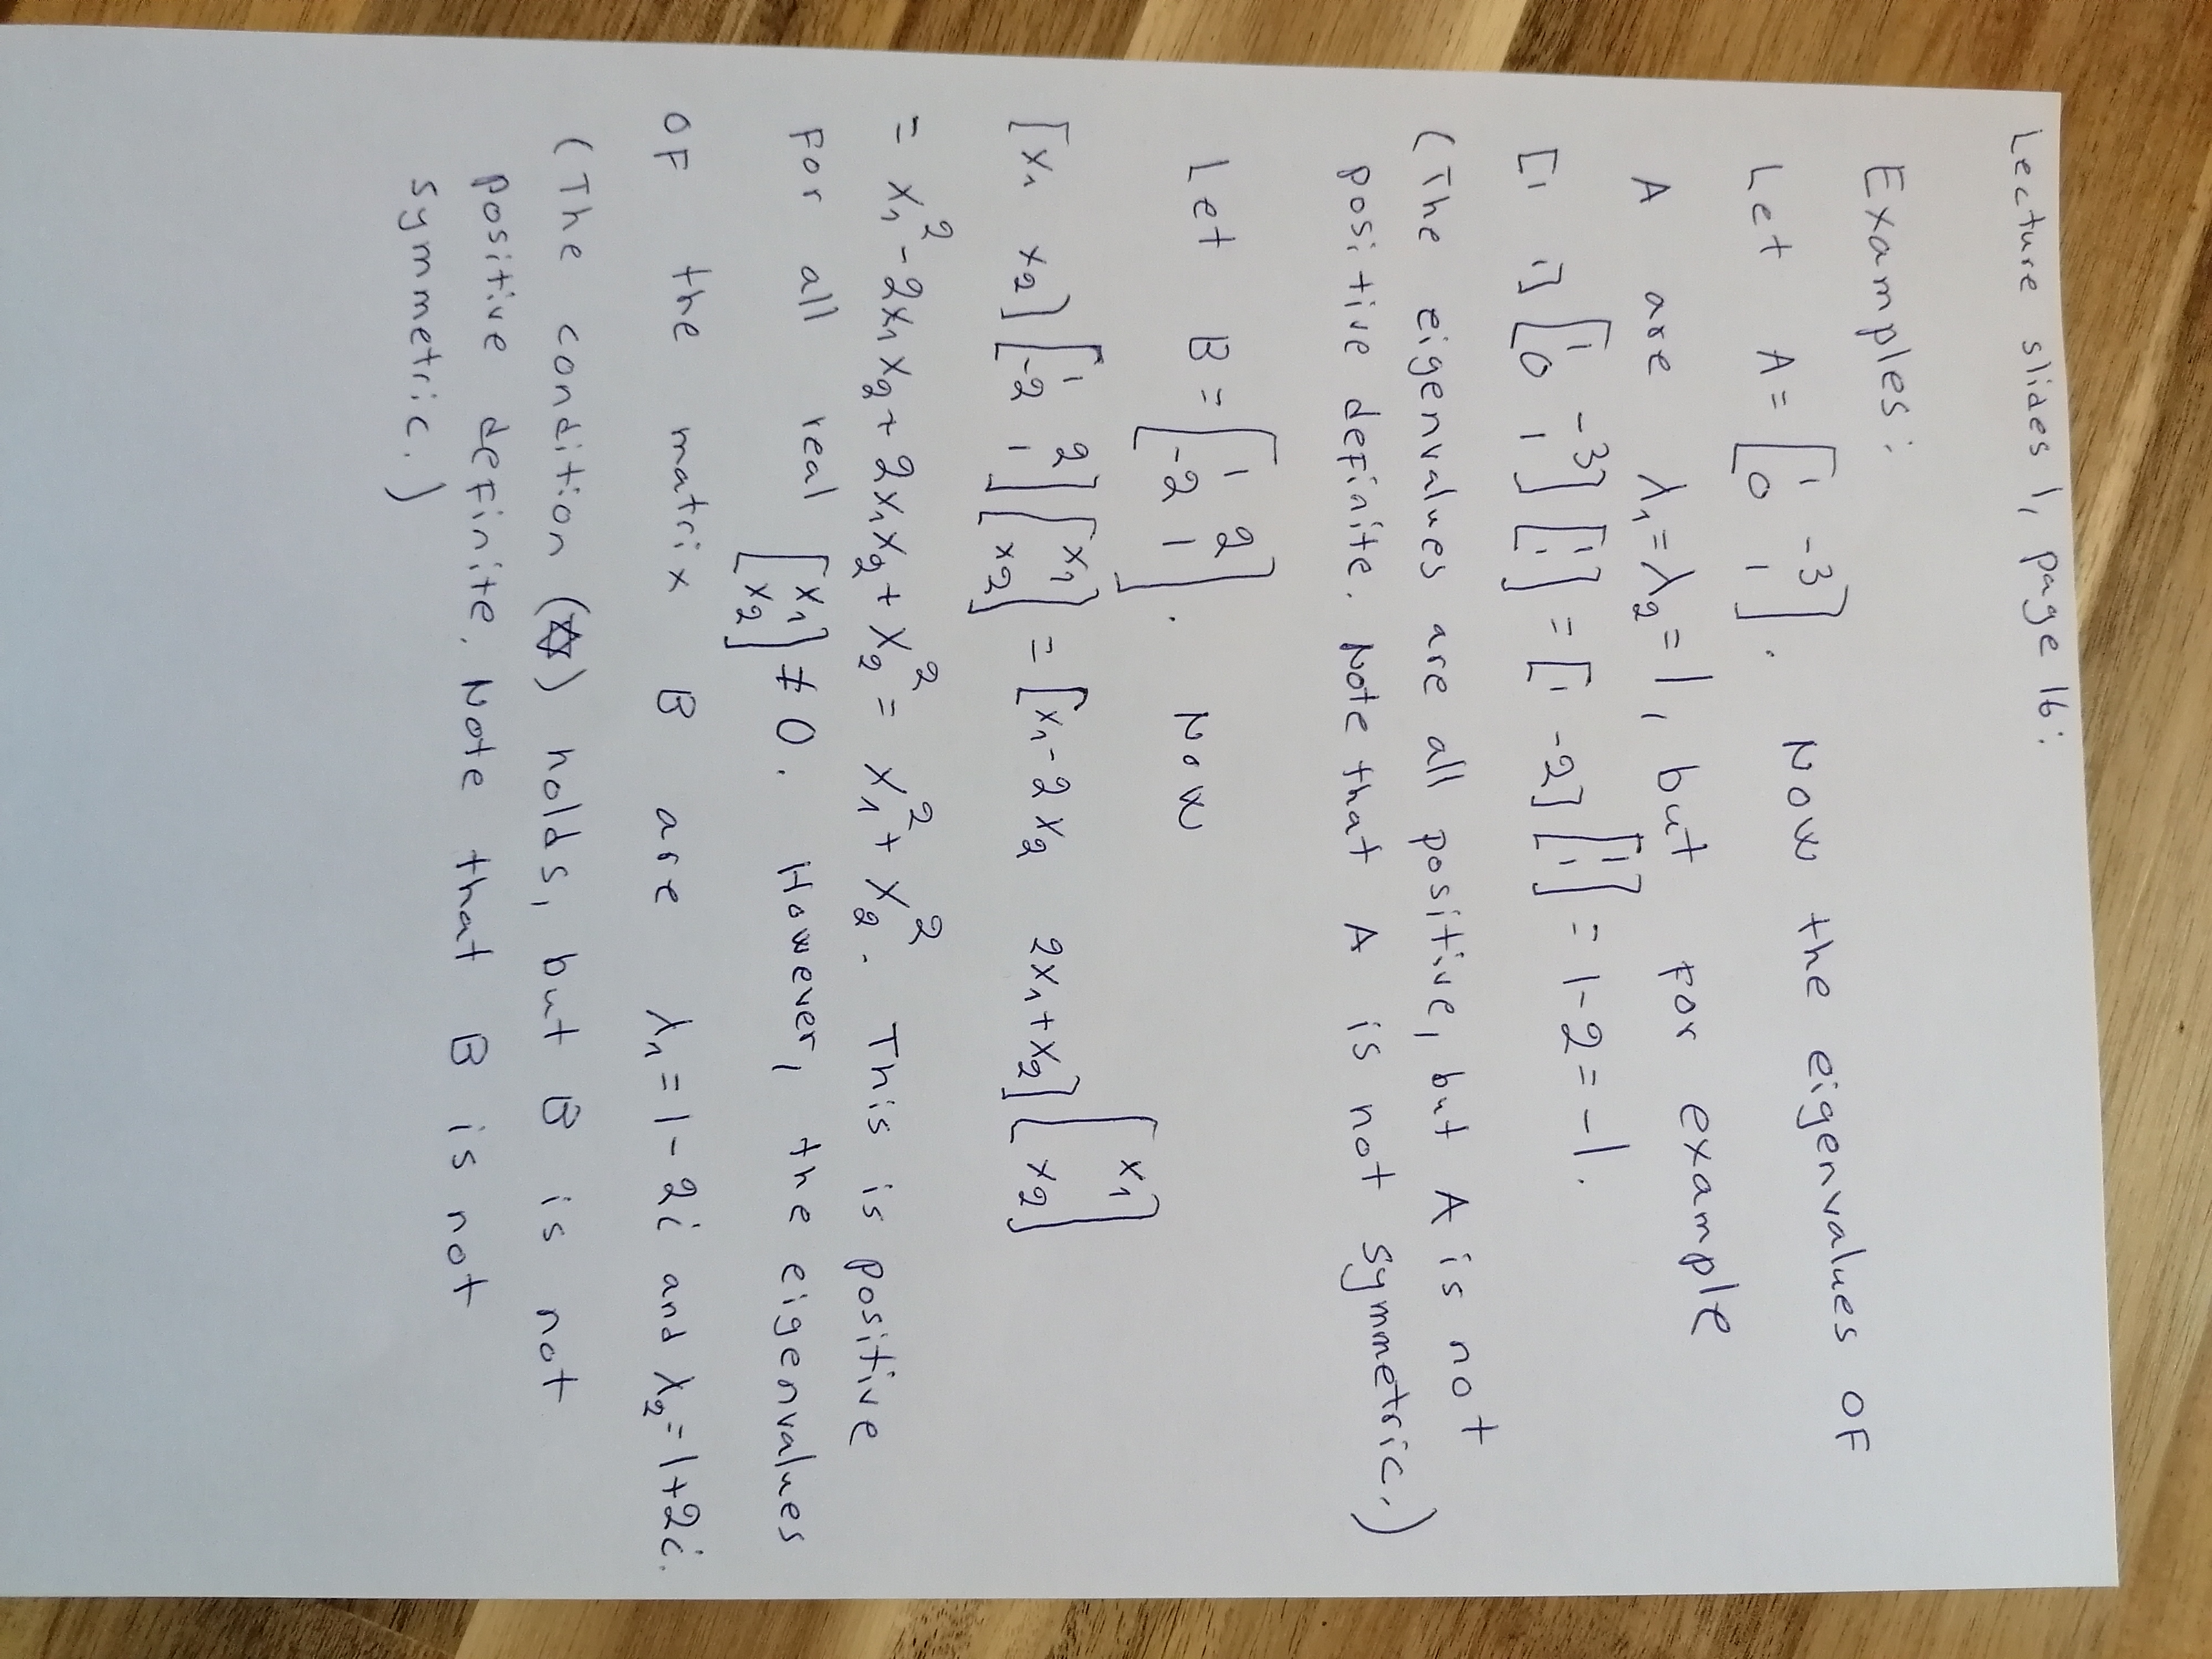 Lecture slides 1, page 16:
Examples:
Let A = [1 -3; 0 1]. Now the eigenvalues of
A are λ₁ = λ₂ = 1, but for example
[1 1] [1 -3; 0 1] [1; 1] = [1 -2] [1; 1] = 1-2 = -1.
(The eigenvalues are all positive, but A is not
positive definite. Note that A is not symmetric.)
Let B = [1 2; -2 1]. Now
[x₁ x₂] [1 2; -2 1] [x₁; x₂] = [x₁-2x₂ 2x₁+x₂] [x₁; x₂]
= x₁² - 2x₁x₂ + 2x₁x₂ + x₂² = x₁² + x₂². This is positive
for all real [x₁; x₂] ≠ 0. However, the eigenvalues
of the matrix B are λ₁ = 1-2i and λ₂ = 1+2i.
(The condition (✡) holds, but B is not
positive definite. Note that B is not
symmetric.)